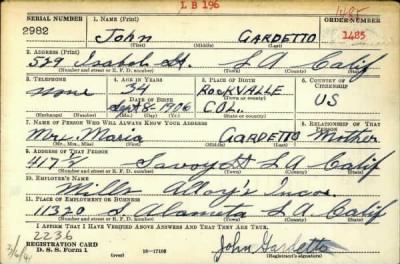 L B 196
1485
SERIAL NUMBER 1. NAME (Print) ORDER NUMBER
2982 JOHN GARDETTO 1485
(First) (Middle) (Last)
2. ADDRESS (Print)
529 Isabel St. L A Calif
(Number and street or R. F. D. number) (Town) (County) (State)
3. TELEPHONE 4. AGE IN YEARS 5. PLACE OF BIRTH 6. COUNTRY OF CITIZENSHIP
none 34 ROCKVALLE
DATE OF BIRTH (Town or county)
Sept 8 1906 COL. US
(Exchange) (Number) (Mo.) (Day) (Yr.) (State or country)
7. NAME OF PERSON WHO WILL ALWAYS KNOW YOUR ADDRESS 8. RELATIONSHIP OF THAT PERSON
Mrs. Maria GARDETTO Mother
(Mr., Mrs., Miss) (First) (Middle) (Last)
9. ADDRESS OF THAT PERSON
417 1/2 Savoy St L A Calif
(Number and street or R. F. D. number) (Town) (County) (State)
10. EMPLOYER'S NAME
Mills Alloy's Inc.
11. PLACE OF EMPLOYMENT OR BUSINESS
11320 S Alameda L A Calif
(Number and street or R. F. D. number) (Town) (County) (State)
I AFFIRM THAT I HAVE VERIFIED ABOVE ANSWERS AND THAT THEY ARE TRUE.
2236
REGISTRATION CARD
D. S. S. Form 1 (over) 16—17105 John Gardetto
(Registrant's signature)